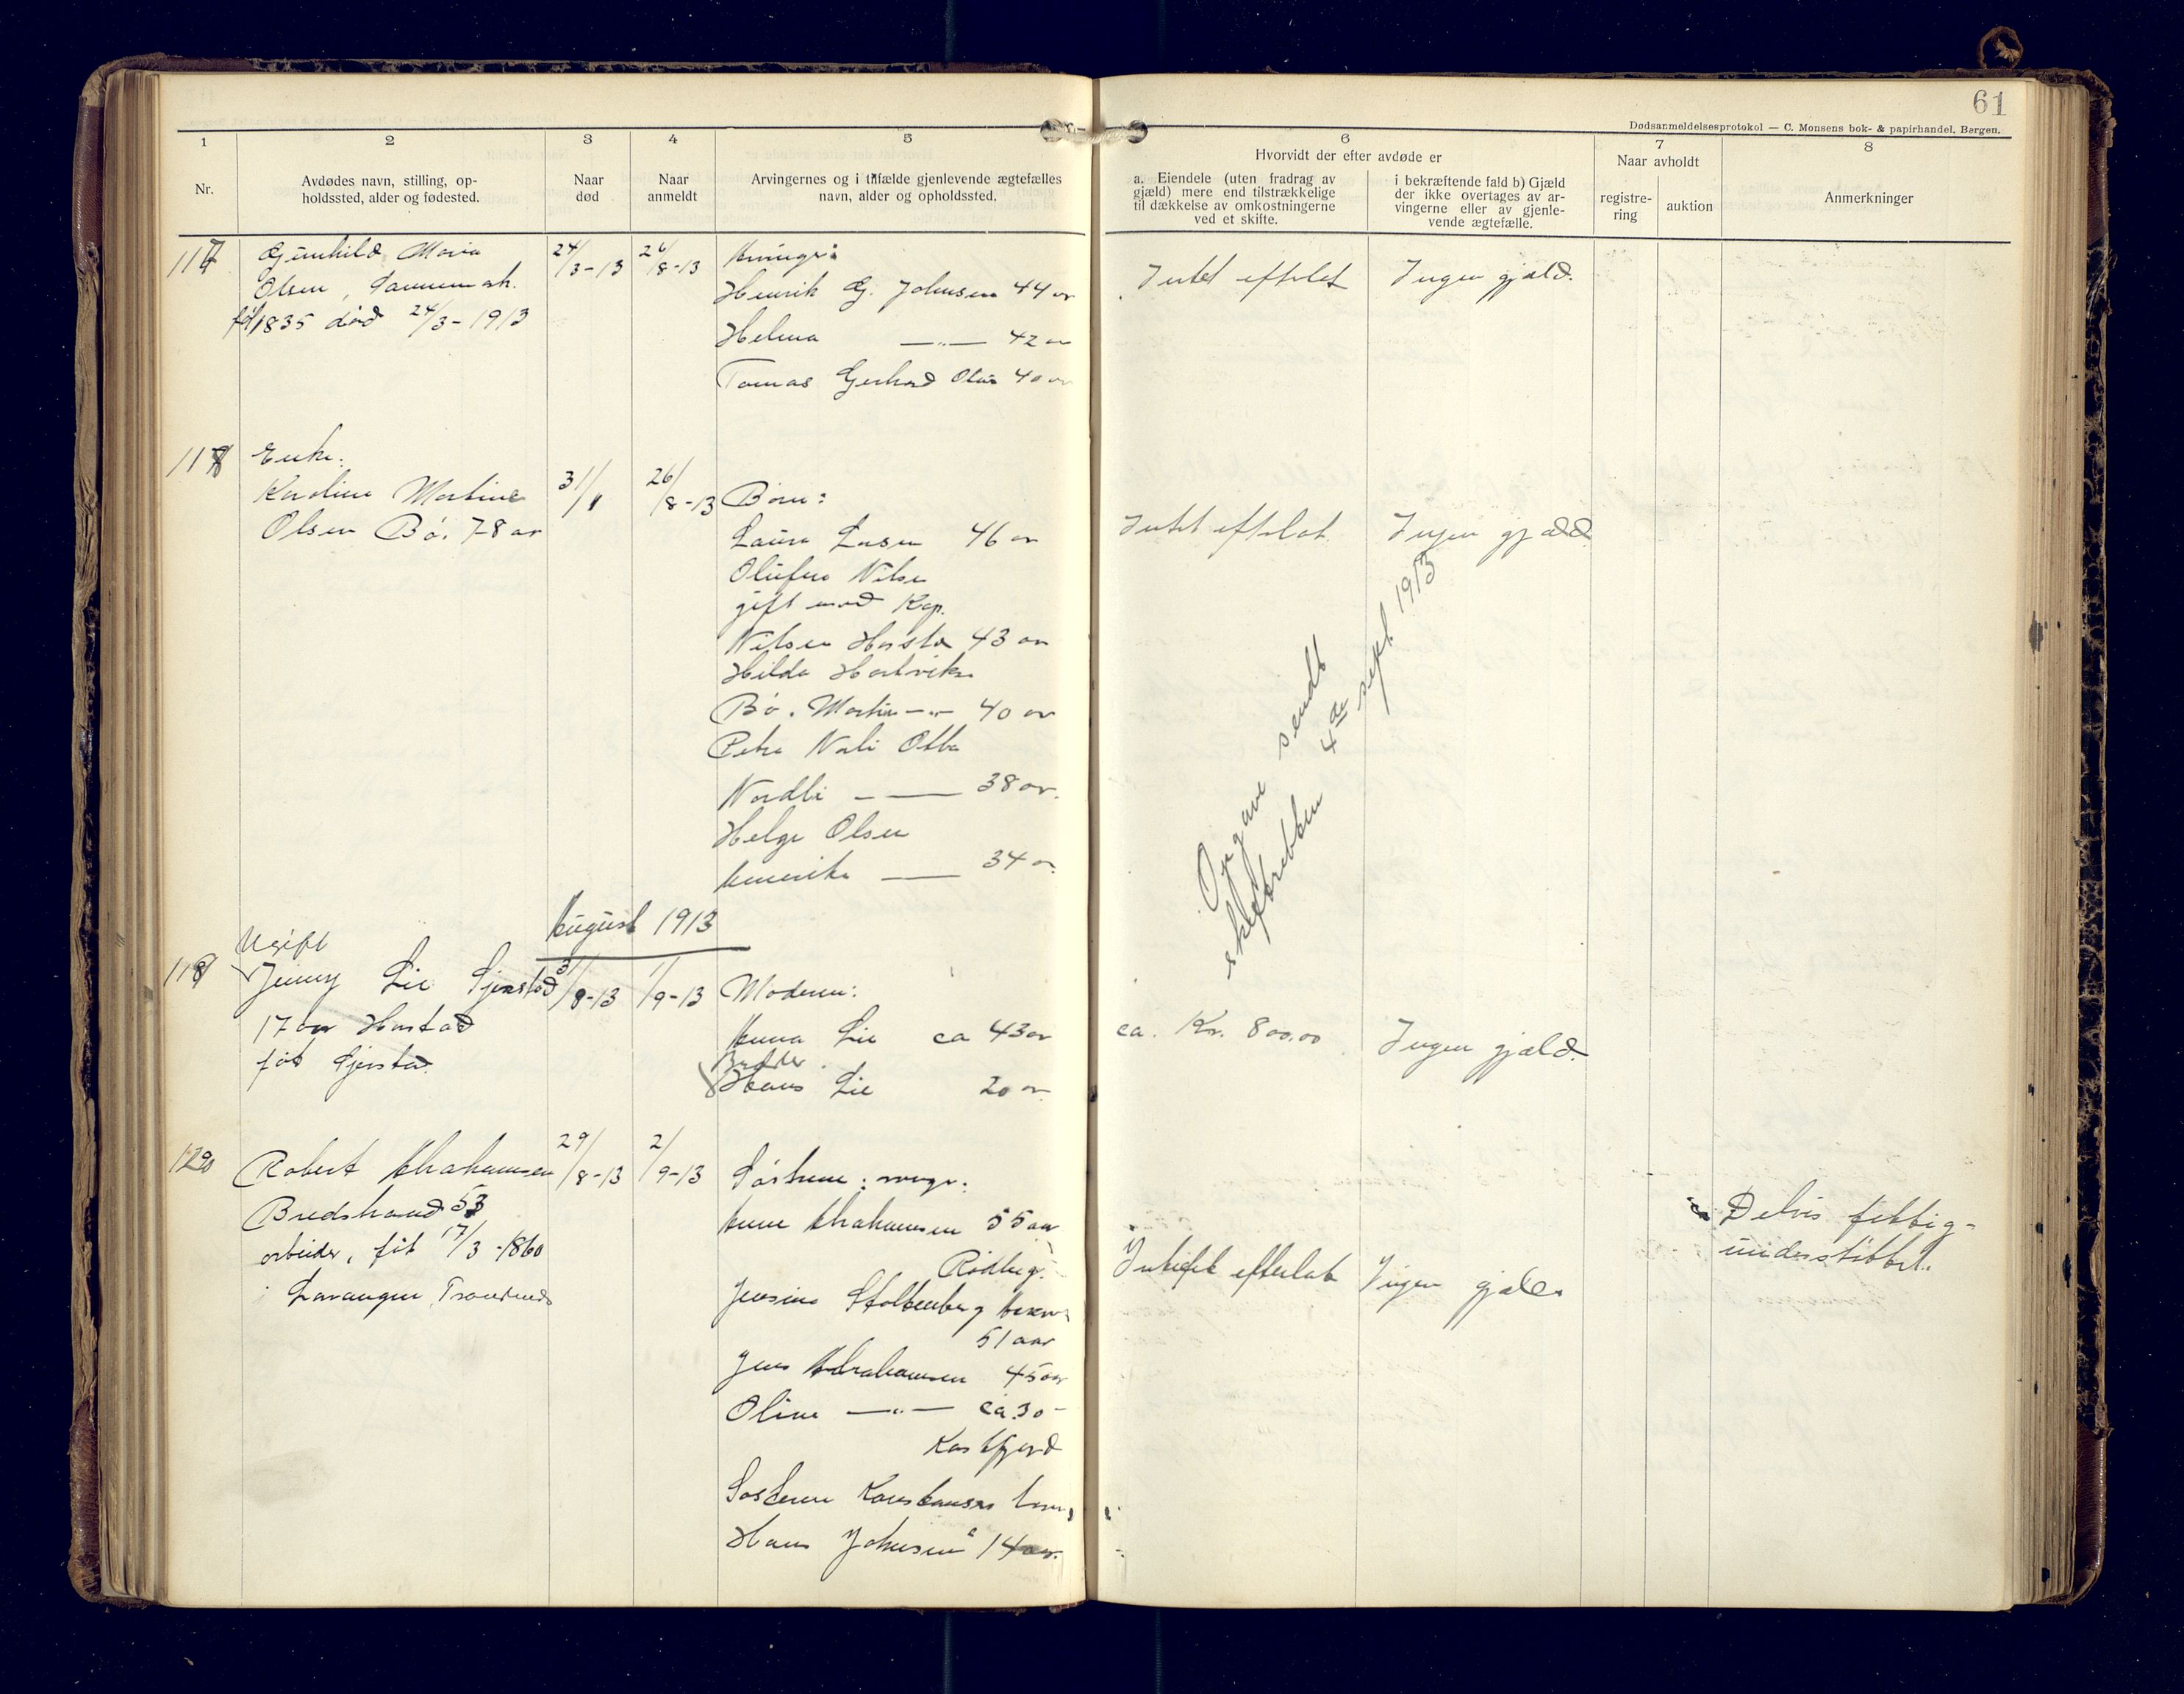 61
Dødsanmeldelsesprotokol — C. Monsens bok- & papirhandel. Bergen.
1
2
3
4
5
6
7
8
Nr.
Avdødes navn, stilling, op-
holdssted, alder og fødested.
Naar
død
Naar
anmeldt
Arvingernes og i tilfælde gjenlevende ægtefælles
navn, alder og opholdssted.
Hvorvidt der efter avdøde er
a. Eiendele (uten fradrag av
gjæld) mere end tilstrækkelige
til dækkelse av omkostningerne
ved et skifte.
i bekræftende fald b) Gjæld
der ikke overtages av ar-
vingerne eller av gjenle-
vende ægtefælle.
Naar avholdt
registre-
ring
auktion
Anmerkninger
117
Gunhild Maria
Olsen,
født 1835 død 24/3-1913
24/3-13
26/8-13
Arvinger:
Henrik G. Johnsen 44 år
Helma —„— 42 år
Tomas Gerhard Olsen 40 år
Intet efterlat
Ingen gjæld.
118
Enke:
Karoline Martine
Olsen Bø. 78 år
31/
26/8-13
Børn:
Laura 46 år
Olufine Nilsen
gift med Kap.
Nilsen Harstad 43 år
Hilda Hartviksen
Bø. Martin —„— 40 år
Petra Otto
Nordli — — 38 år.
Helge Olsen
Amerika — 34 år.
Intet efterlat
Ingen gjæld
Opgave sendt
skifteretten 4de sept 1913
August 1913
119
Ugift
Jenny Lie
17 år Harstad
født
31/8-13
1/9-13
Moderen:
Anna Lie ca 43 år
Broder
Hans Lie 20 år.
ca. Kr. 800.00
Ingen gjæld.
120
Robert Abrahamsen
Bredstrand 53
arbeider, født 17/3-1860
i Lavangen Trondenes
29/8-13
2/9-13
Søskene:
Anne Abrahamsen 55 aar
Jensine Stoltenberg
51 aar
Jens Abrahamsen 45 aar
Oline —„— ca. 30 -
Kasfjord
Søsteren børn,
Hans Johnsen 14 aar.
Intet efterlat
Ingen gjæld.
Delvis fattig-
understøttet.